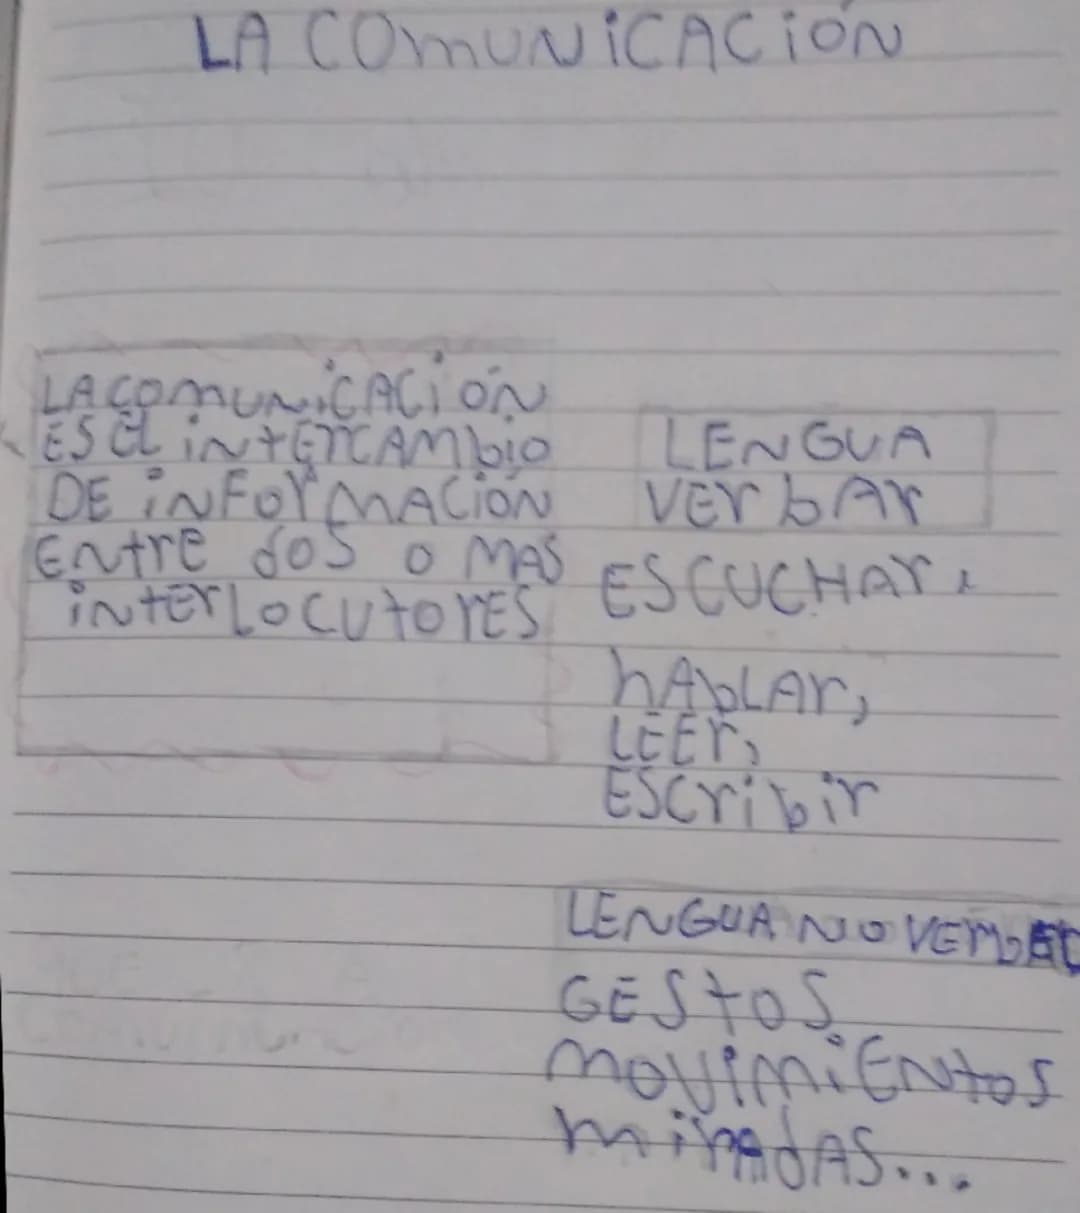 LA COMUNICACIÓN
LA COMUNICACIÓN
ES EL INTERCAMBIO
DE INFORMACIÓN
ENTRE DOS O MAS
INTERLOCUTORES
LENGUA
VERBAR
ESCUCHAR,
HABLAR,
LEER,
ESCRIBIR
LENGUA NO VERBAL
GESTOS
MOVIMIENTOS
MIRADAS...